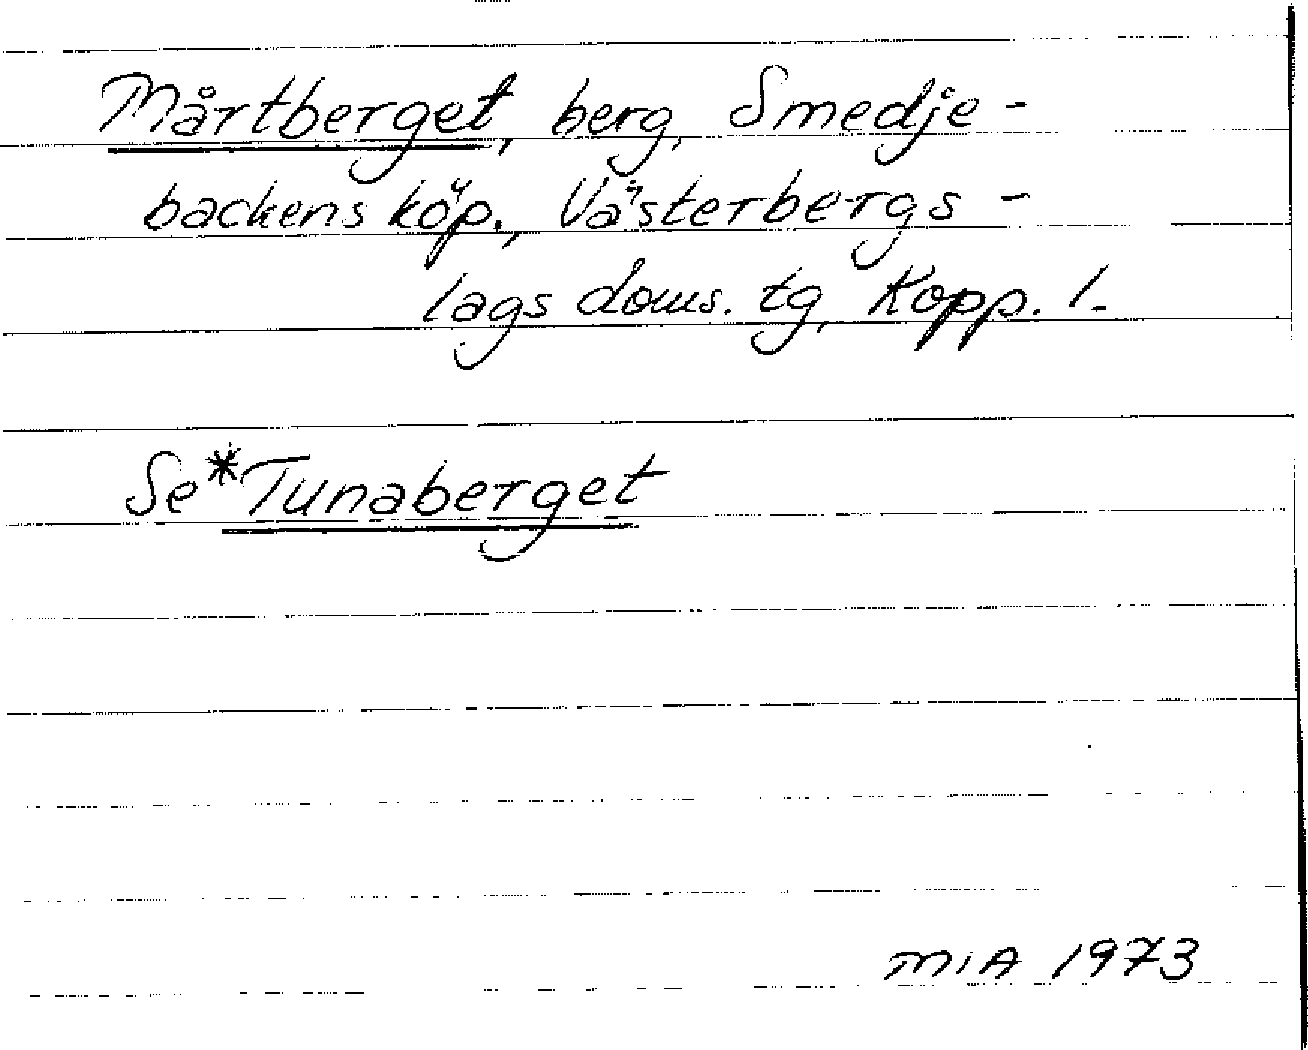 Mårtberget, berg, Smedje-
backens köp., Västerbergs-
lags doms. tg, Kopp. l.
Se *Tunaberget
MIA 1973